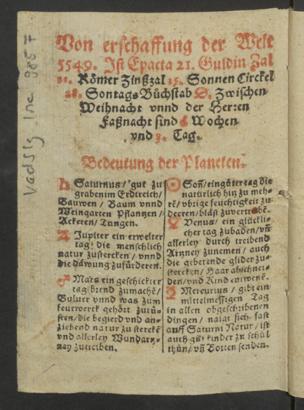 Von erschaffung der Welt
5549. Ist Epacta 21. Guldin Zal
Römer Zinßzal 15. Sonnen Circkel
28. Sontags Büchstab D. Zwischen
Weihnacht vnnd der Herren
Faßnacht sind 8 Wochen
vnd 3. Tag.
Bedeutung der Planeten.
♄ Saturnus / gut zu
graben im Erdtreich /
Bauwen / Baum vnnd
Weingarten Pflantzen /
Ackeren / Tungen.
♃ Jupiter ein erwelter
tag die menschlich
natur zustercken / vnnd
die däwung zufürderen.
♂ Mars ein geschickter
tag brend zumachē /
Buluer vnnd was zum
feurwerck gehört zurüsten / die begierd vnd anziehend natur zu sterckē
vnd allerley Wundartznay zutreiben.
☉ Soñ / ein güter tag die
natürlich hitz zu mehrē / vbrige feuchtigkeit zu
♀ Venus / ein glücklicher tag zubadē / vñ
allerley durch treibend
Artzney zunemen / auch
die geberende glider zustercken / Haar abschneiden / vnd Kind entwenē.
☿ Mercurius / gibt ein
mittelmessigen Tag
in allen obgeschribenen
dingen / naigt sich fast
auff Saturni Natur / ist
auch güt kinder zu schül
thün / vñ Botten senden.